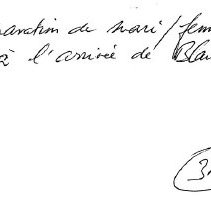 paration de mari/fem
à l'arrivée de Blan
3